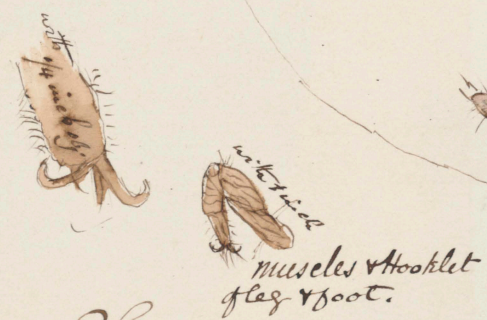 with 1/4 inch obj.
with 1 inch
muscles & Hooklet
of leg & foot.